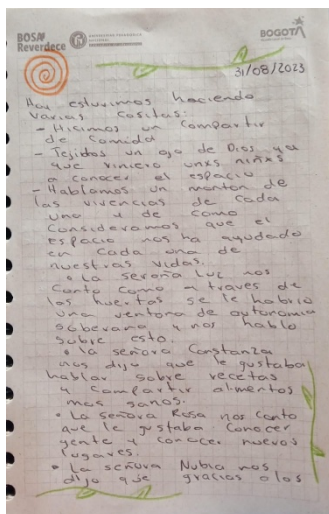 BOSA
Reverdece
UNIVERSIDAD PEDAGÓGICA
NACIONAL
BOGOTÁ
31/08/2023
Hoy estuvimos haciendo
varias cositas:
- Hicimos un compartir
de comida
- Tejidos un ojo de Dios ya
que viniero unxs niñxs
a conocer el espacio
- Hablamos un monton de
las vivencias de cada
uno y de como
consideramos que el
espacio nos ha ayudado
en cada una de
nuestras vidas.
• La señora Luz nos
conto como a traves de
las huertas se le habrio
una ventana de autonomia
soberana y nos hablo
sobre esto.
• la señora Constanza
nos dijo que le gustaba
hablar sobre recetas
y compartir alimentos
mas sanos.
• La señora Rosa nos conto
que le gustaba conocer
gente y conocer nuevos
lugares.
• La señora Nubia nos
dijo que gracias a los